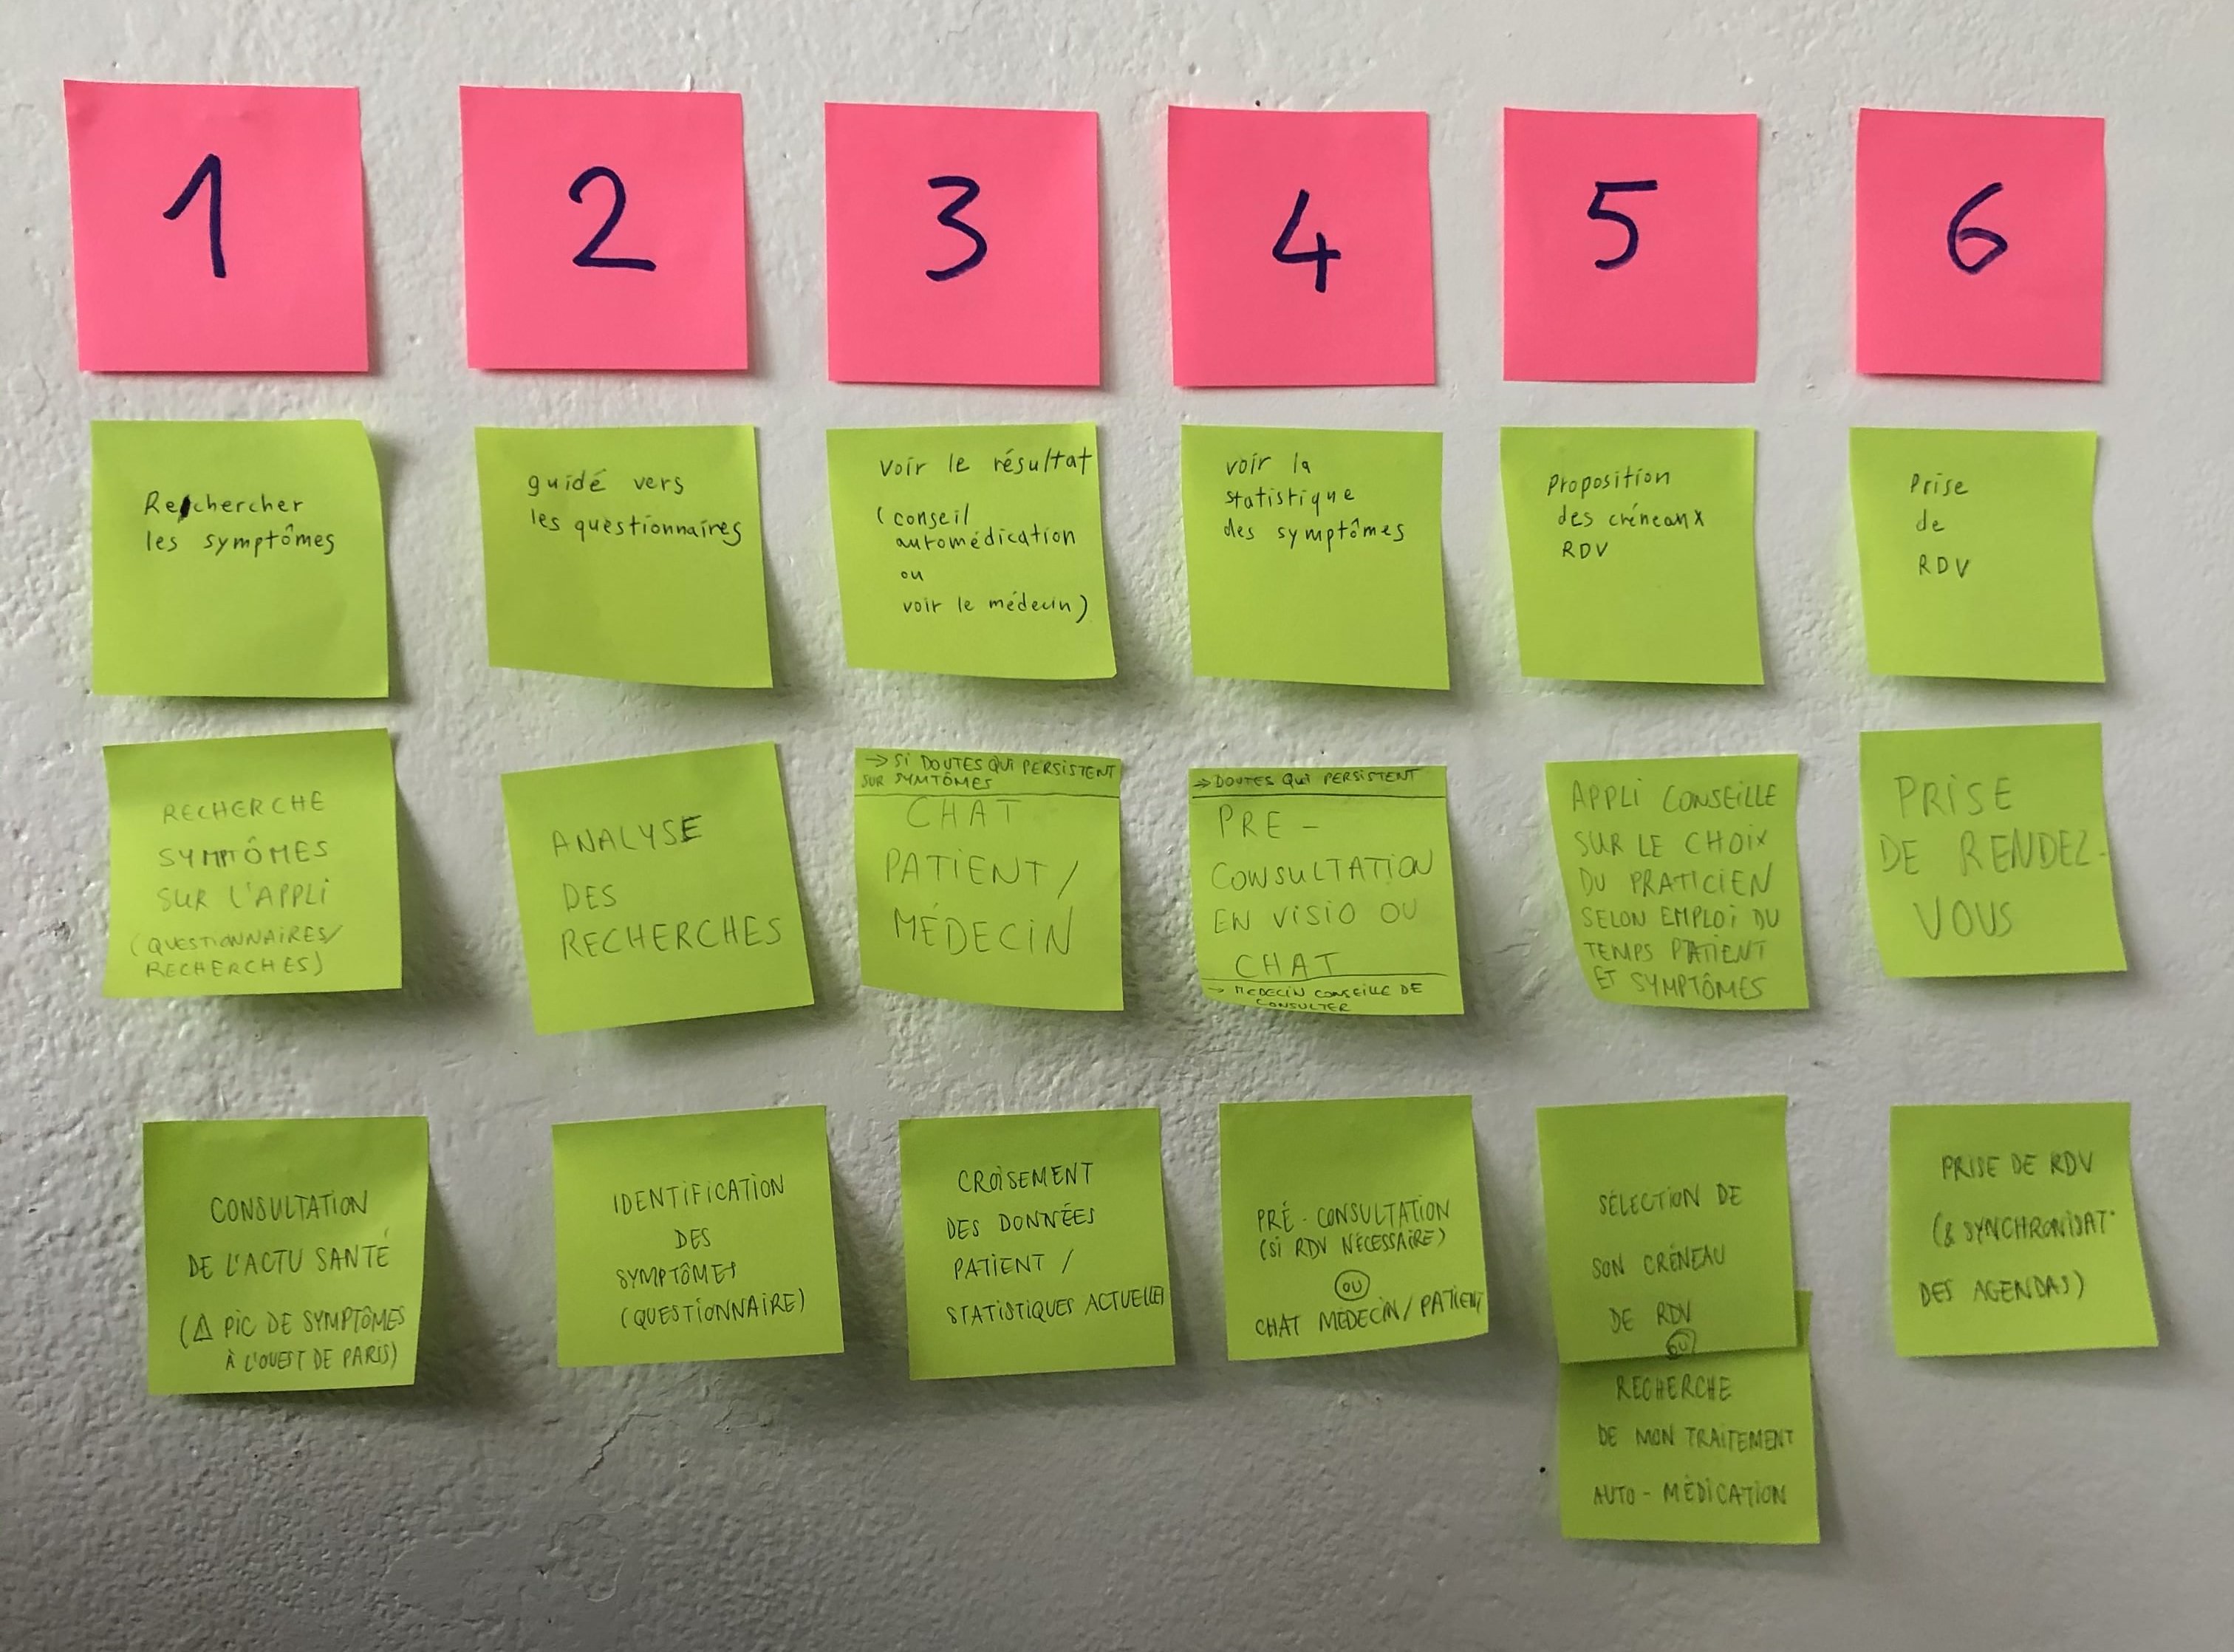 1
2
3
4
5
6
Rechercher
les symptômes
guidé vers
les questionnaires
voir le résultat
(conseil
automédication
ou
voir le médecin)
voir la
statistique
des symptômes
Proposition
des créneaux
RDV
Prise
de
RDV
RECHERCHE
SYMPTÔMES
SUR L'APPLI
(QUESTIONNAIRES/
RECHERCHES)
ANALYSE
DES
RECHERCHES
→ SI DOUTES QUI PERSISTENT
SUR SYMTÔMES
CHAT
PATIENT/
MÉDECIN
→ DOUTES QUI PERSISTENT
PRE-
CONSULTATION
EN VISIO OU
CHAT
→ MEDECIN CONSEILLE DE
CONSULTER
APPLI CONSEILLE
SUR LE CHOIX
DU PRATICIEN
SELON EMPLOI DU
TEMPS PATIENT
ET SYMPTÔMES
PRISE
DE RENDEZ-
VOUS
CONSULTATION
DE L'ACTU SANTÉ
(⚠ PIC DE SYMPTÔMES
À L'OUEST DE PARIS)
IDENTIFICATION
DES
SYMPTÔMES
(QUESTIONNAIRE)
CROISEMENT
DES DONNÉES
PATIENT /
STATISTIQUES ACTUELLES
PRÉ-CONSULTATION
(SI RDV NÉCESSAIRE)
OU
CHAT MÉDECIN/PATIENT
SÉLECTION DE
SON CRÉNEAU
DE RDV
OU
RECHERCHE
DE MON TRAITEMENT
AUTO-MÉDICATION
PRISE DE RDV
(& SYNCHRONISAT°
DES AGENDAS)